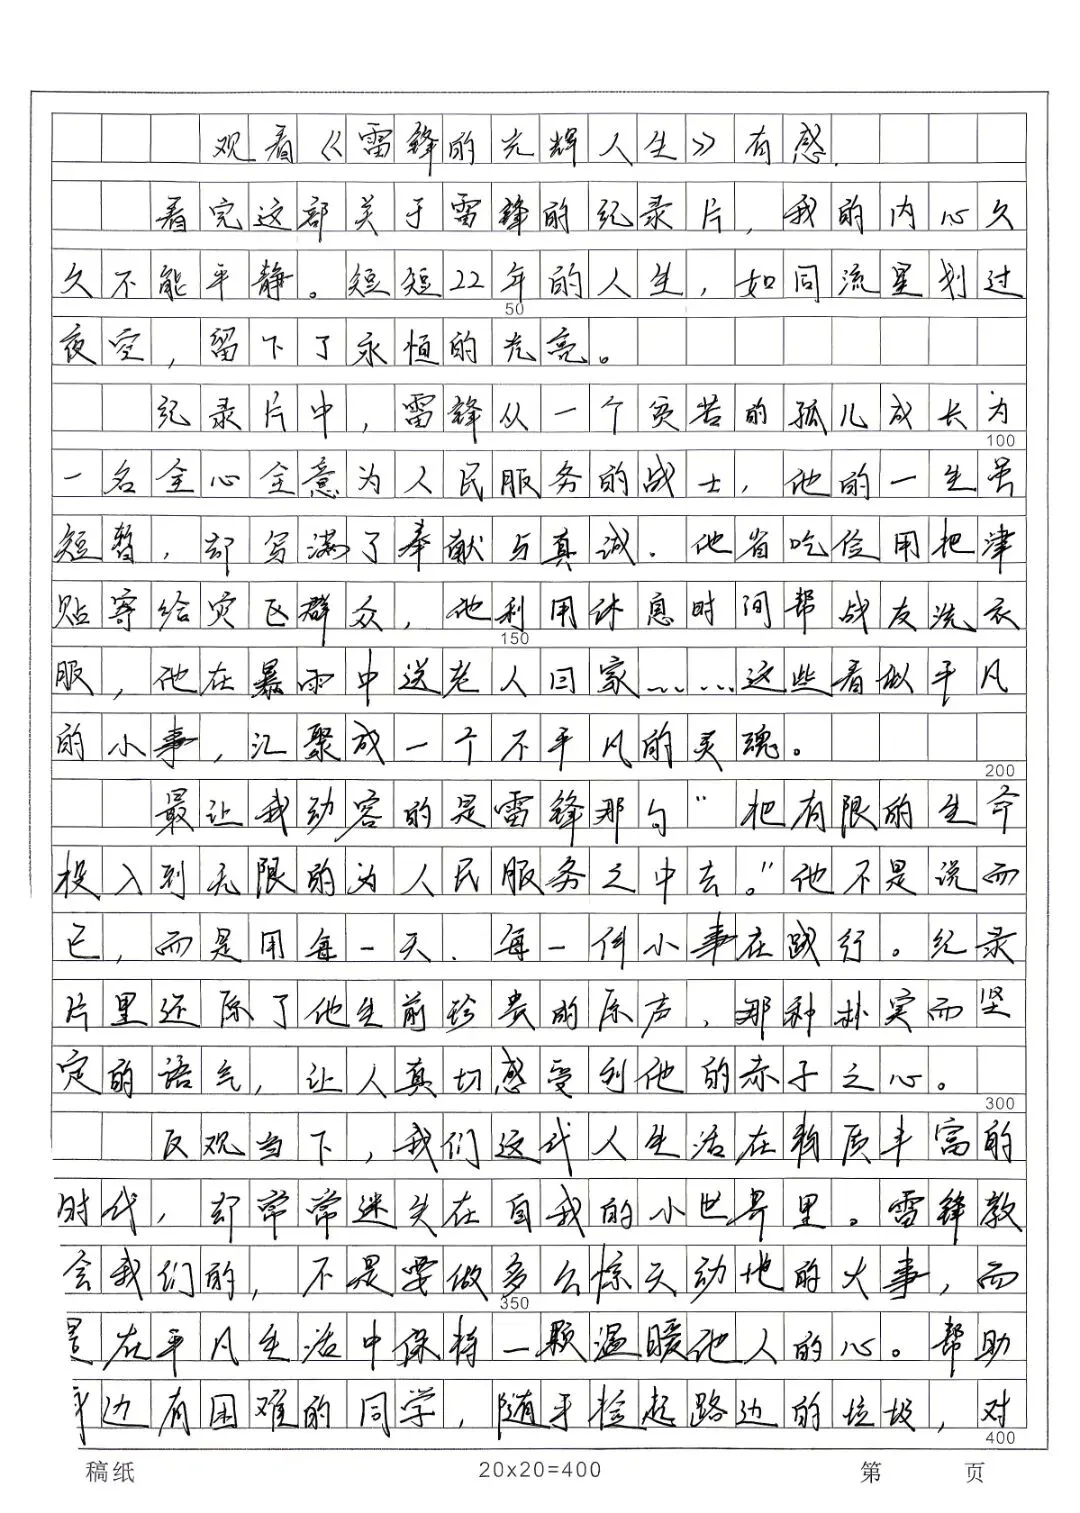 观看《雷锋的光辉人生》有感.
看完这部关于雷锋的纪录片，我的内心久
久不能平静。短短22年的人生，如同流星划过
50
夜空，留下了永恒的光亮。
纪录片中，雷锋从一个贫苦的孤儿成长为
100
一名全心全意为人民服务的战士，他的一生虽
短暂，却写满了奉献与真诚．他省吃俭用把津
贴寄给灾区群众，他利用休息时间帮战友洗衣
150
服，他在暴雨中送老人回家……这些看似平凡
的小事，汇聚成一个不平凡的灵魂。
200
最让我动容的是雷锋那句“把有限的生命
投入到无限的为人民服务之中去。”他不是说而
已，而是用每一天．每一件小事在践行。纪录
片里还原了他生前珍贵的原声，那种朴实而坚
定的语气，让人真切感受到他的赤子之心。
300
反观当下，我们这代人生活在物质丰富的
时代，却常常迷失在自我的小世界里。雷锋教
会我们的，不是要做多么惊天动地的大事，而
350
是在平凡生活中保持一颗温暖他人的心。帮助
身边有困难的同学，随手捡起路边的垃圾，对
400
稿纸 20x20=400 第 页